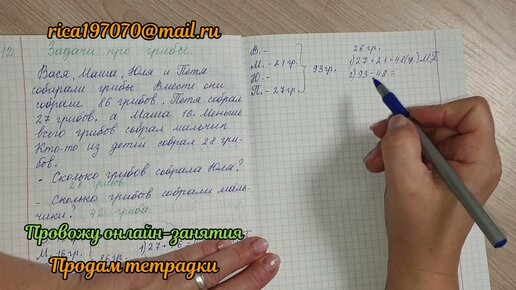 rica197070@mail.ru
12 Задачи про грибы
Вася, Маша, Юля и Петя
собирали грибы. Вместе они
собрали 86 грибов. Петя собрал
27 грибов, а Маша 16. Меньше
всего грибов собрал мальчик.
Кто-то из детей собрал 28 гри-
бов.
- Сколько грибов собрала Юля?
28 грибов
- Сколько грибов собрали маль-
чики? 42 гриба
М. - 16 гр.
86 гр.
1) 27 +
В. -
М. - 21 гр.
Ю. -
П. - 27 гр.
93 гр.
26 гр.
1) 27 + 21 = 48 (гр.) М.П.
2) 93 - 48 =
Провожу онлайн-занятия
Продам тетрадки